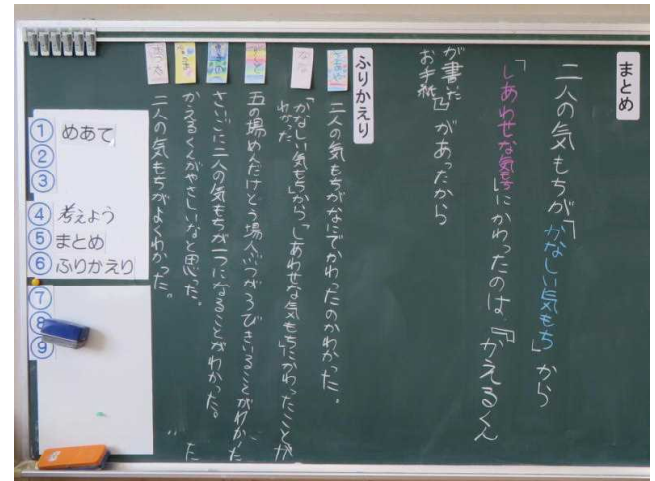 まとめ
二人の気もちが「かなしい気もち」から
「しあわせな気もち」にかわったのは『かえるくん
が書いたお手紙』があったから
ふりかえり
二人の気もちがなにでかわったのかわかった。
「かなしい気もち」から「しあわせな気もち」にかわったことが
わかった
五の場めんだけどう場人ぶつが
さいごに二人の気もちが一つになることがわかった。
かえるくんがやさしいなと思った。
二人の気もちがよくわかった。
① めあて
②
③
④ 考えよう
⑤ まとめ
⑥ ふりかえり
⑦
⑧
⑨